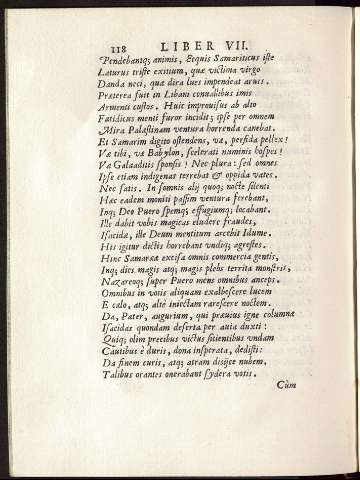 118 LIBER VII.
Pendebantq; animis, Ecquis Samariticus iste
Laturus triste exitium, quæ victima virgo
Danda neci, qua dira lues impendeat aruis.
Præterea fuit in Libani conuallibus imis
Armenti custos. Huic improuisus ab alto
Fatidicus menti furor incidit; ipse per omnem
Mira Palæstinam ventura horrenda canebat.
Et Samarim digito ostendens, va, perfida pellex!
Væ tibi, va Babylon, scelerati numinis hospes!
Va Galaaditis sponsis! Nec plura: sed omnes
Ipse etiam indigenas terrebat & oppida vates.
Nec satis. In somnis alij quoq; nocte silenti
Hæc eadem moniti passim ventura ferebant,
Inq; Deo Puero spemq; effugiumq; locabant.
Ille dabit vobis magicas eludere fraudes,
Isacidæ, ille Deum mentitum arcebit Idume.
His igitur dictis horrebant vndiq; agrestes.
Hinc Samaræ excisa omnis commercia gentis,
Inq; dies magis atq; magis plebs territa monstris,
Nazareoq; super Puero mens omnibus anceps.
Omnibus in votis aliquam exalbescere lucem
E calo, atq; altè iniectam rarescere noctem.
Da, Pater, augurium, qui præuius igne columnæ
Isacidas quondam deserta per auia duxti:
Quiq; olim precibus victus sitientibus vndam
Cautibus è duris, dona insperata, dedisti:
Da finem curis, atq; atram disijce nubem.
Talibus orantes onerabant sydera votis.
Cùm